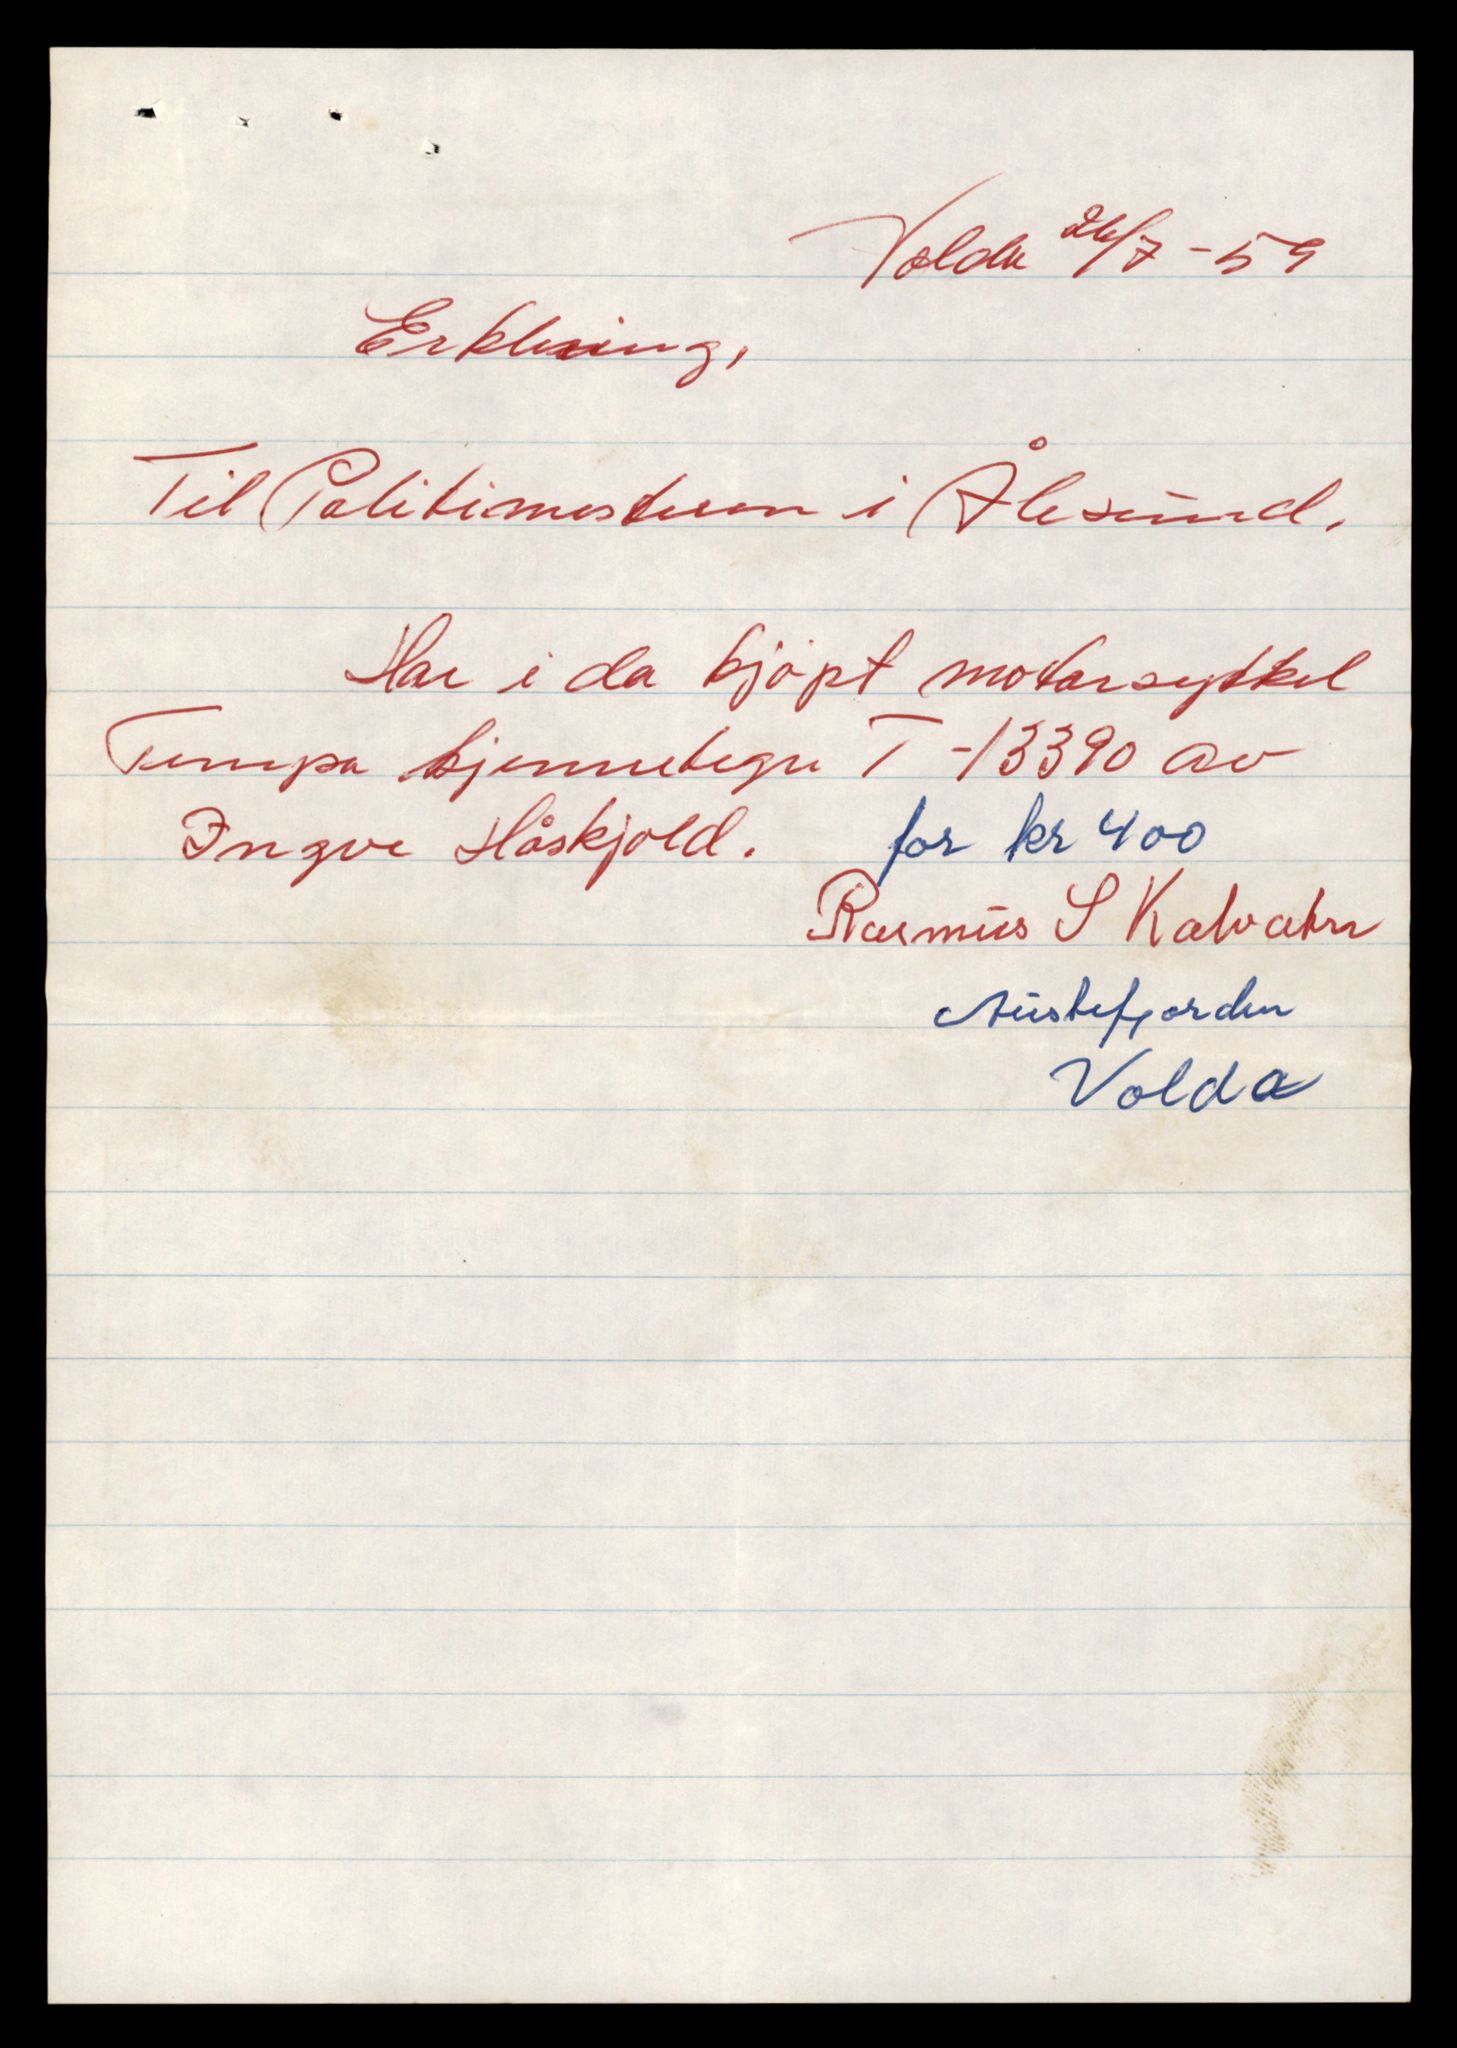 Volda 26/7-59
Erklæring,
Til Politimesteren i Ålesund.
Har i da kjöpt motorsykkel
Tempo kjennetegn T-13390 av
Ingve Håskjold. for kr 400
Rasmus S Kalvatn
Austefjorden
Volda